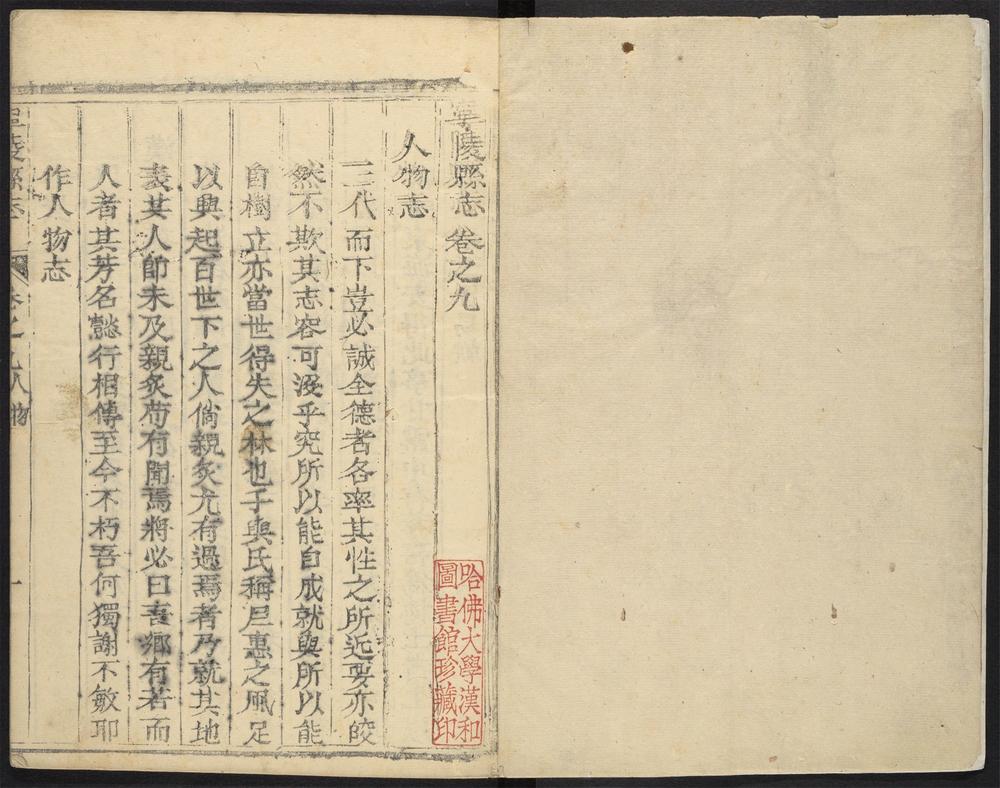 寧陵縣志卷之九
人物志
三代而下豈必誠全德者各率其性之所近要亦皎
然不欺其志容可沒乎究所以能自成就與所以能
自樹立亦當世得失之林也子與氏稱尼惠之風足
以興起百世下之人倘親炙尤有過焉者乃就其地
表其人節未及親炙苟有聞焉將必曰吾鄉有若而
人者其芳名懿行相傳至今不朽吾何獨謝不敏耶
作人物志
寧陵縣志
卷之九人物
一
哈佛大學漢和
圖書館珍藏印